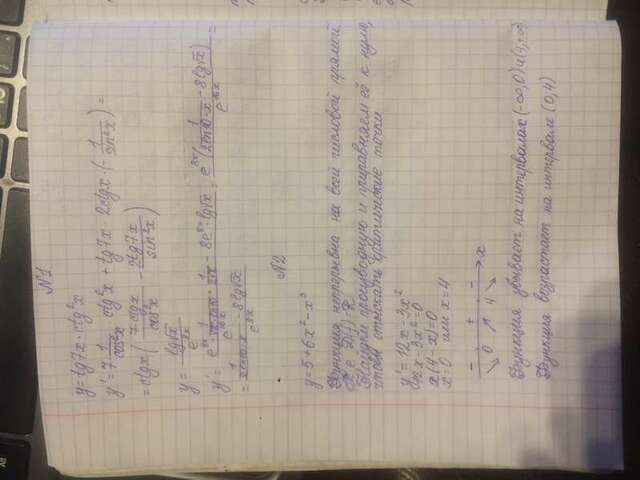 №1
y = tg7x · ctg²x
y' = 7 1/cos²x ctg²x + tg7x · 2ctgx · (- 1/sin²x) =
= ctgx (7ctgx/cos²x - 2tg7x/sin²x)
y = lg√x/e^8x
y' = (e^8x · 1/(√x·ln10) · 1/(2√x) - 8e^8x lg√x)/e^16x = e^8x (1/(2ln10·x) - 8lg√x)/e^16x =
= (1/(2ln10·x) - 8lg√x)/e^8x
№2
y = 5 + 6x² - x³
Функция непрерывна на всей числовой прямой,
т.е D(f)=R
Найдём производную и приравняем её к нулю,
чтобы отыскать критические точки
y' = 12x - 3x²
12x - 3x² = 0
x(4 - x) = 0
x = 0 или x = 4
- + -
0 4 x
Функция убывает на интервалах (-∞,0) и (4,+∞)
Функция возрастает на интервале (0,4)